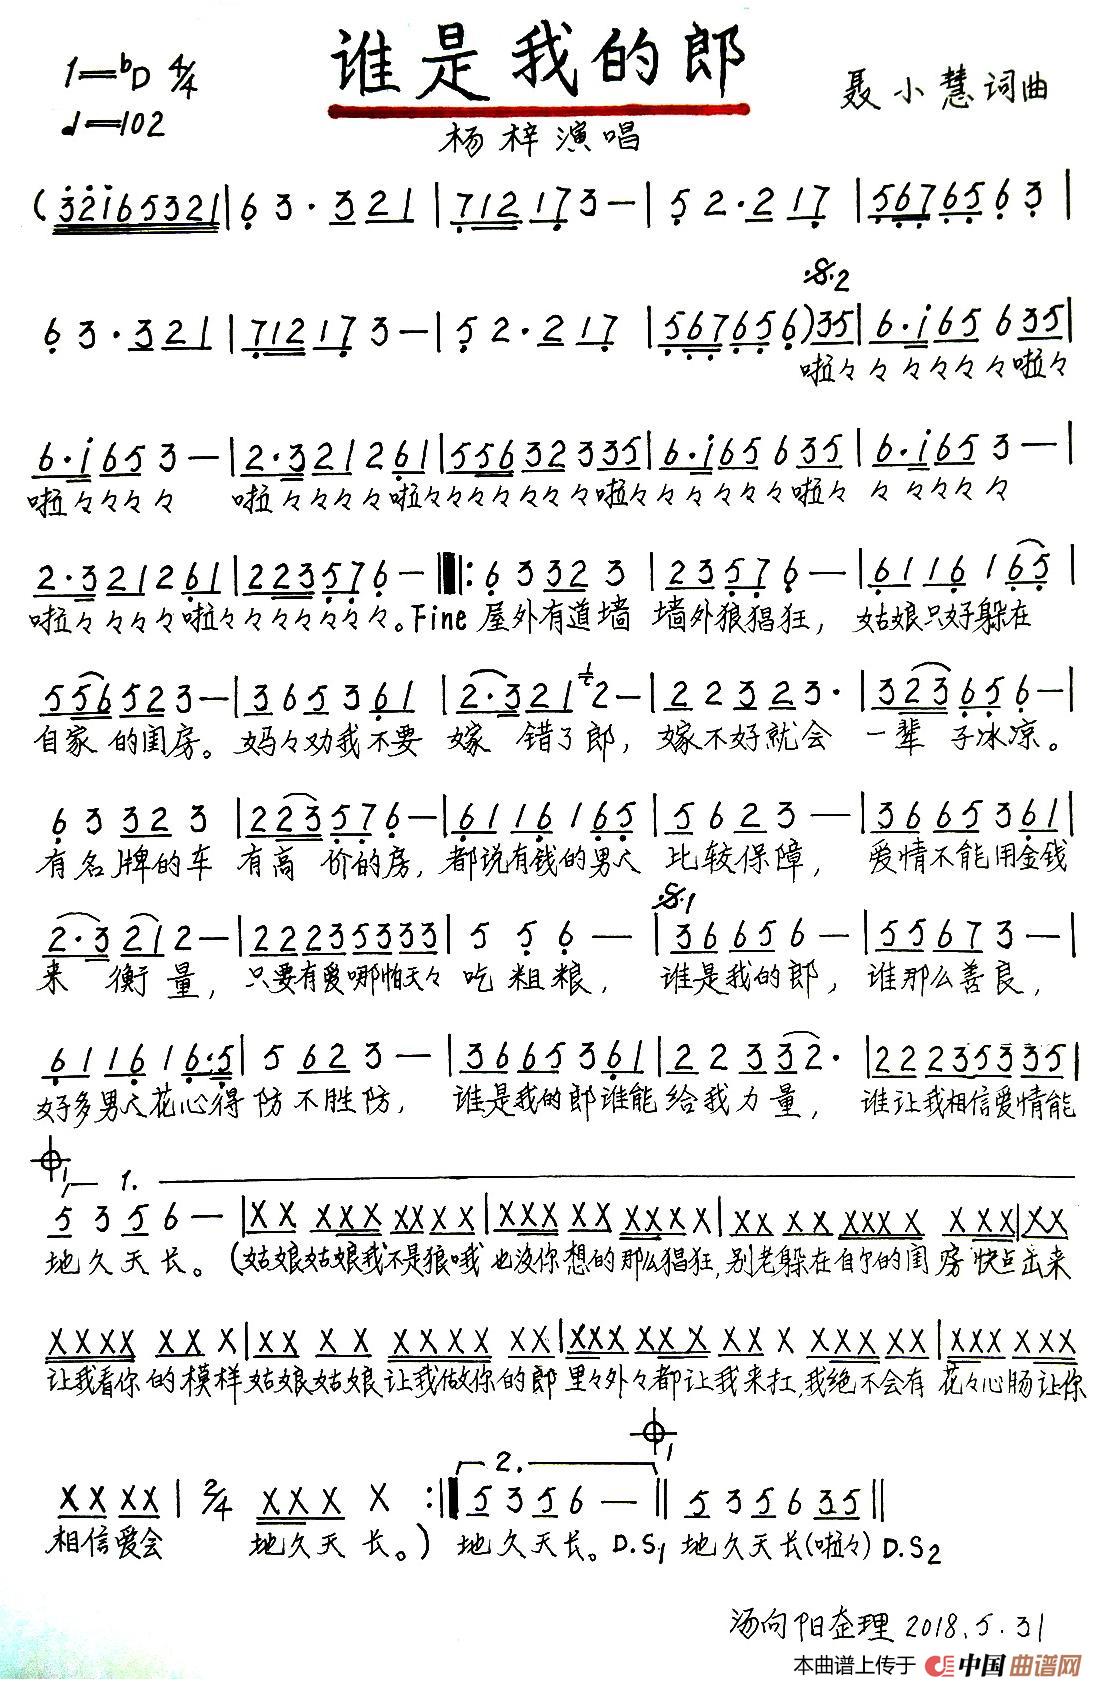 谁是我的郎
1=bD 4/4
♩=102
聂小慧词曲
杨梓演唱
(32165321|63·321|712173—|52·217|5676563|
63·321|712173—|52·217|567656)35|6·i65635|
𝄋2
啦々々々々々々啦々
6·i653—|2·321261|556323335|6·i65635|6·i653—|
啦々々々々 啦々々々々啦々々々々々々啦々々々々々啦々 々々々々々
2·321261|2235 76—‖:63323|23576—|6116165|
啦々々々々啦々々々々々々。Fine 屋外有道墙 墙外狼猖狂，姑娘只好躲在
556523—|365361|2·3212—|22323·|323656—|
自家的闺房。妈々劝我不要 嫁 错了郎，嫁不好就会 一辈 子冰凉。
63323|223576—|6116165|5623—|3665361|
有名牌的车 有高 价的房，都说有钱的男人 比较保障，爱情不能用金钱
2·3212—|22235333|556—|36656—|55673—|
𝄋1
来 衡量，只要有爱哪怕天々 吃粗粮，谁是我的郎，谁那么善良，
611616·5|5623—|3665361|22332·|22235335|
好多男人花心得 防不胜防，谁是我的郎谁能 给我力量，谁让我相信爱情能
1.
5356—|XX XXX XXXX|XXX XX XXXX X|XX XX XXX X XXX|XX
地久天长。(姑娘姑娘我不是狼哦 也没你想的那么猖狂,别老躲在自家的闺房 快点出来
XXXX XX X|XX XX XXXX XX|XXX XXX XX X XXX XX|XXX XXX
让我看你的模样 姑娘姑娘让我做你的郎 里々外々都让我来扛,我绝不会有 花々心肠让你
2.
XX XX|2/4 XXX X:‖5356—‖535635‖
相信爱会 地久天长。) 地久天长。D.S1 地久天长(啦々) D.S2
汤向阳整理 2018.5.31
本曲谱上传于 中国曲谱网